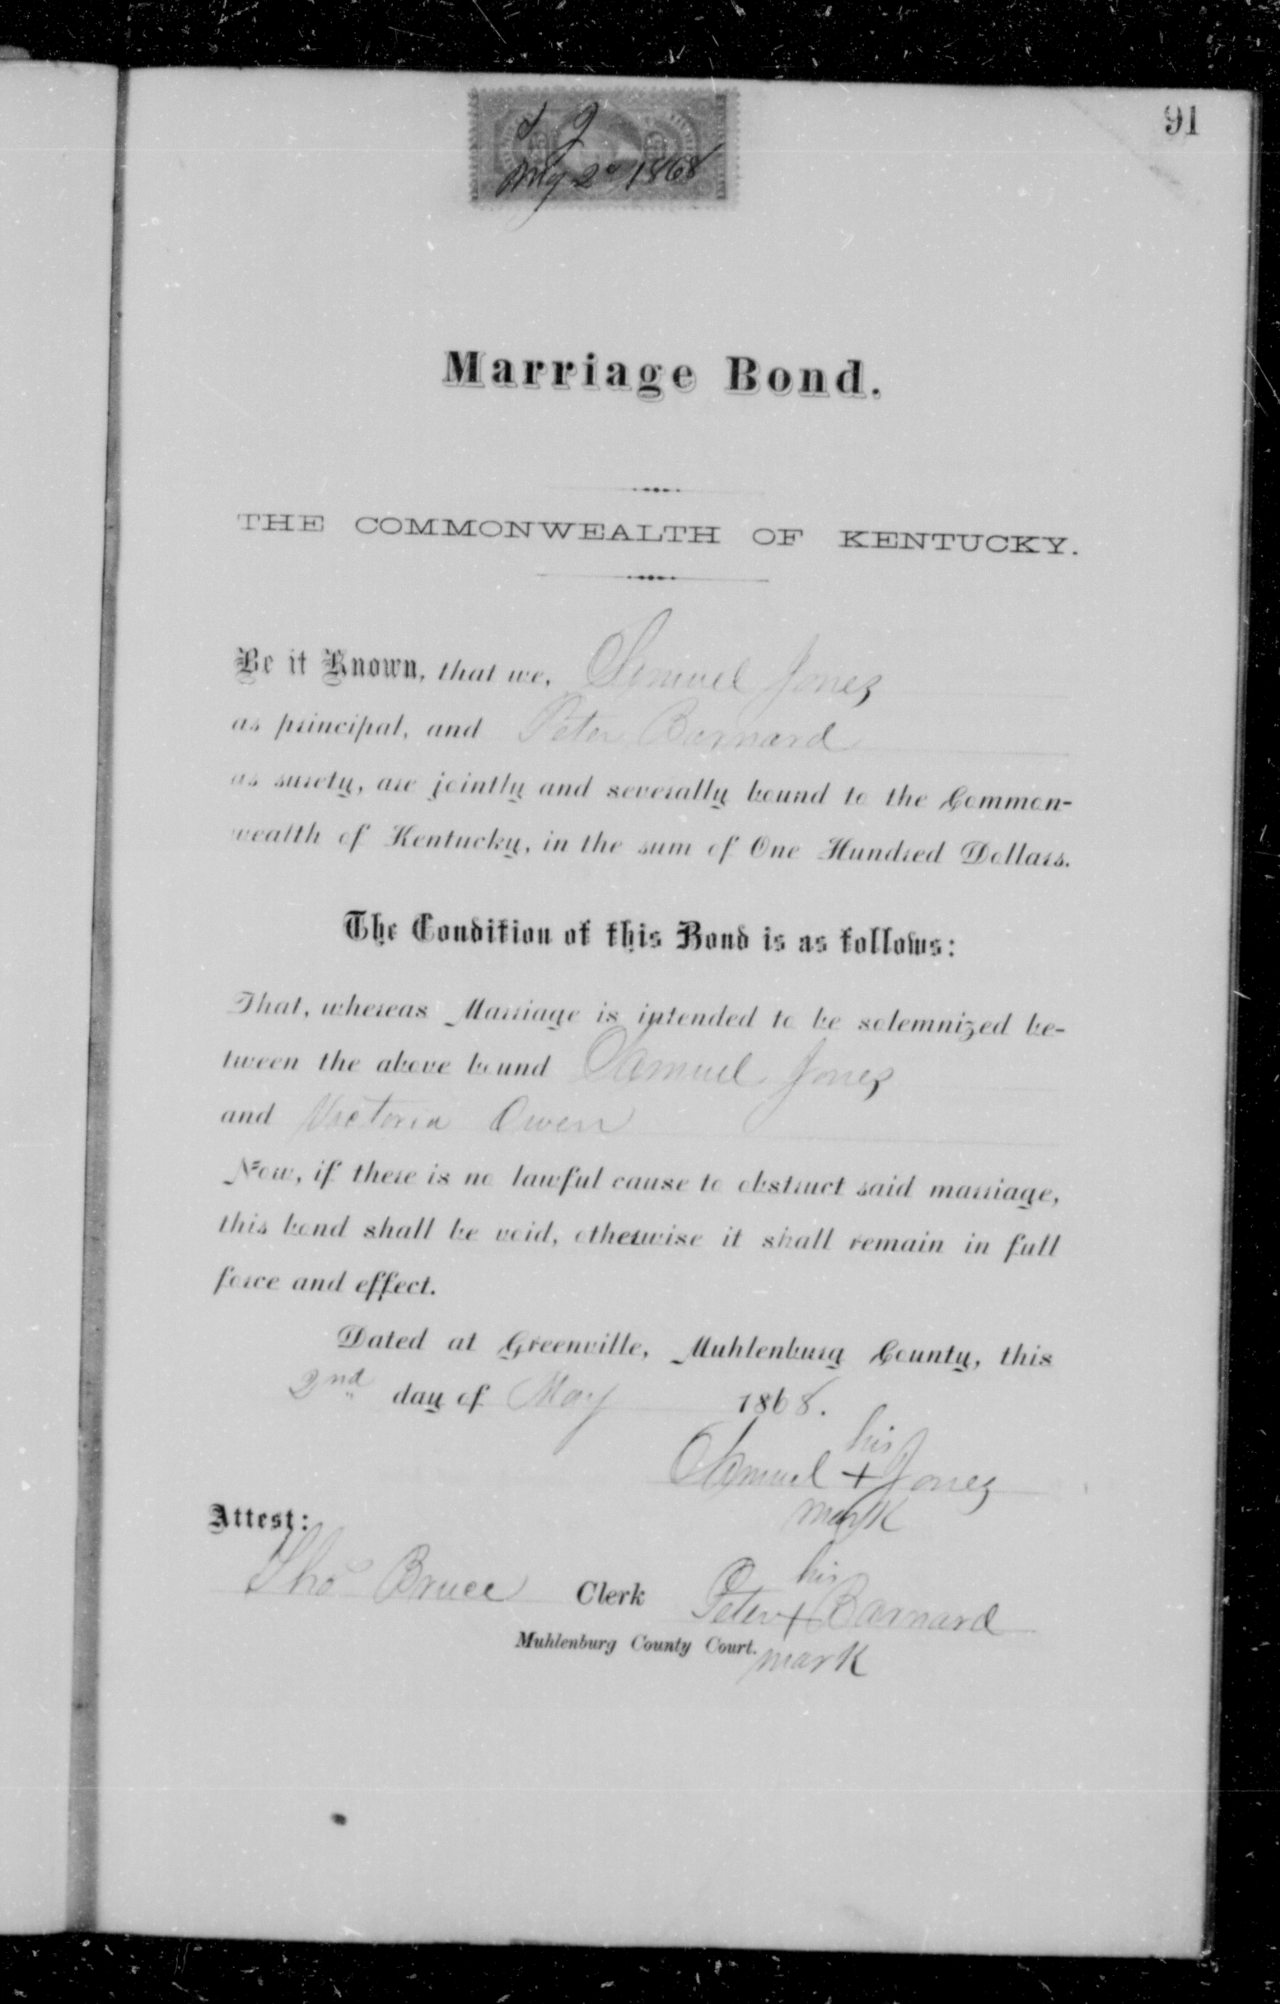 91
S J
May 2d 1868
Marriage Bond.
THE COMMONWEALTH OF KENTUCKY.
Be it Known, that we, Samuel Jones
as principal, and Peter Barnard
as surety, are jointly and severally bound to the Common-
wealth of Kentucky, in the sum of One Hundred Dollars.
The Condition of this Bond is as follows:
That, whereas Marriage is intended to be solemnized be-
tween the above bound Samuel Jones
and Victoria Owen
Now, if there is no lawful cause to obstruct said marriage,
this bond shall be void, otherwise it shall remain in full
force and effect.
Dated at Greenville, Muhlenburg County, this
2nd day of May 1868.
his
Samuel + Jones
mark
Attest:
his
Thos Bruce Clerk Peter + Barnard
Muhlenburg County Court. mark